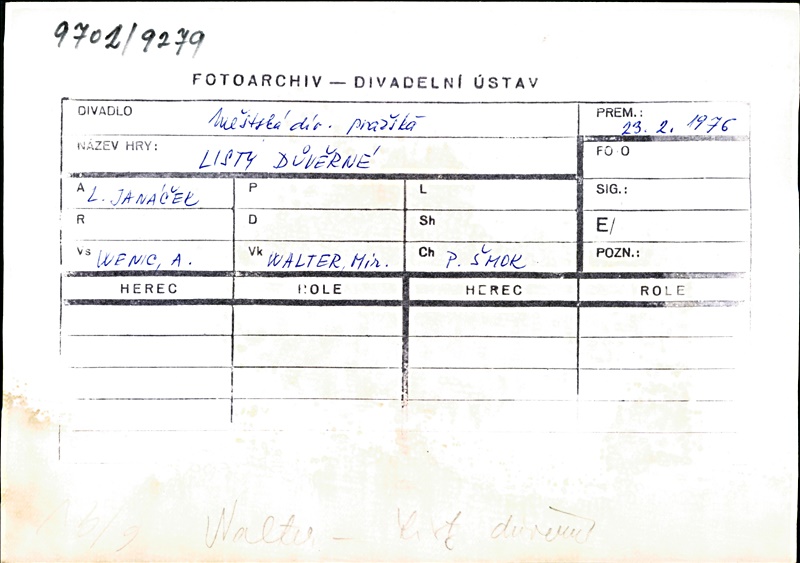 9701/9279
FOTOARCHIV — DIVADELNÍ ÚSTAV
DIVADLO Městská div. pražská PREM.: 23. 2. 1976
NÁZEV HRY: LISTY DŮVĚRNÉ FOTO
A L. JANÁČEK P L SIG.:
R D Sh E/
Vs WENIG, A. Vk WALTER, Mir. Ch P. ŠMOK POZN.:
HEREC ROLE HEREC ROLE
Walter – Listy důvěrné